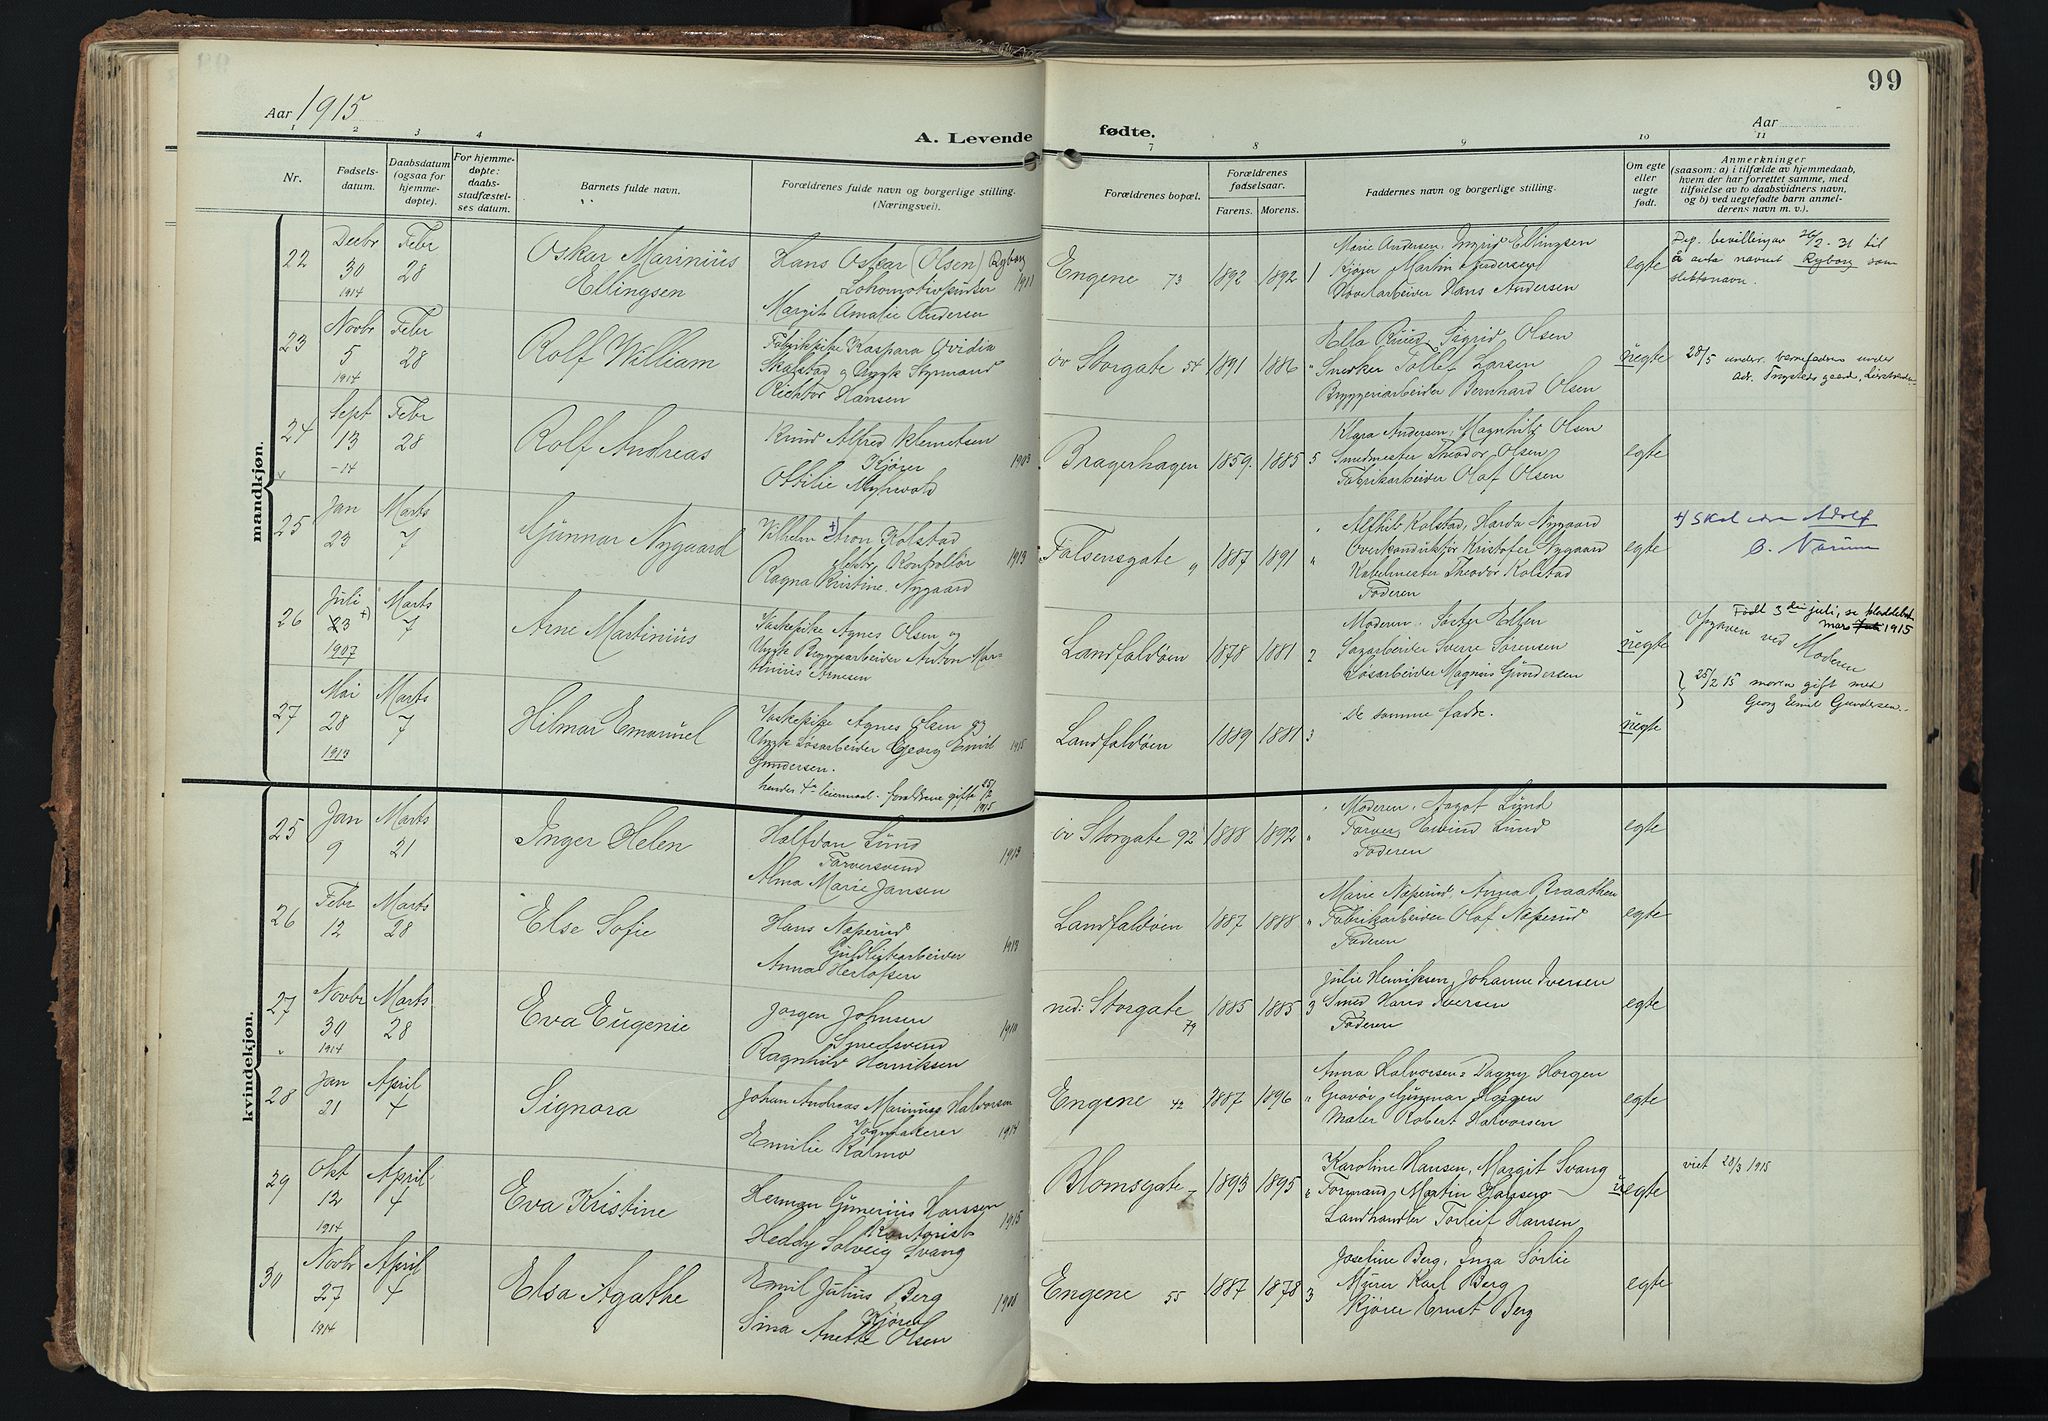 99
Aar 1915
Aar
1 2 3 4
A. Levende fødte.
7 8 9 10 11
Nr.
Fødsels-
datum.
Daabsdatum
(ogsaa for
hjemme-
døpte).
For hjemme-
døpte:
daabs-
stadfæstel-
ses datum.
Barnets fulde navn.
Forældrenes fulde navn og borgerlige stilling.
(Næringsvei).
Forældrenes bopæl.
Forældrenes
fødselsaar.
Farens. Morens.
Faddernes navn og borgerlige stilling.
Om egte
eller
uegte
født.
Anmerkninger
(saasom: a) i tilfælde av hjemmedaab,
hvem der har forrettet samme, med
tilføielse av to daabsvidners navn,
og b) ved uegtefødte barn anmel-
derens navn m. v.).
mandkjøn.
22
Decbr
30
1914
Febr
28
Oskar Marinius
Ellingsen
Hans Oskar (Olsen) Ryborg
Lokomotivpudser 1911
Margit Amalie Andersen
Engene 73
1892
1892
1
Marie Andersen, Ingrid Ellingsen
Kjører Martin Andersen
Hans Andersen
egte
Dep. bevilling av 26/2-31 til
å anta navnet Ryborg som
slektsnavn.
23
Novbr
5
1914
Febr
28
Rolf William
Fabrikpike Kaspara Ovidia
Skalstad og Ungk Styrmand
Richtor Hansen
öv Storgate 54
1891
1886
"
Ella Ruud, Sigrid Olsen
Snedker Tollef Larsen
Bryggeriarbeider Bernhard Olsen
uegte
28/5 under. barnefaderen under
adr.
24
Sept
13
-14
Febr
28
Rolf Andreas
Knud Alfred Klemetsen
Kjører 1903
Ottilie Myhrvold
Bragerhagen
1859.
1885
5
Klara Andersen, Magnhild Olsen
Smedmester Theodor Olsen
Fabrikarbeider Olaf Olsen
egte
25
Jan
23
Marts
7
Gunnar Nygaard
Wilhelm +) Aron Kolstad
elektr. Kontrollør 1913
Ragna Kristine Nygaard
Tolsensgate 9
1887
1891
"
Alfhild Kolstad, Harda Nygaard
Overkonduktør Kristofer Nygaard
Kabelmester Theodor Kolstad
Faderen
egte
+) Skal være Adolf
26
Juli
23 +)
1907
Marts
7
Arne Martinius
Vaskepike Agnes Olsen og
Ungk Bryggearbeider Anton Mar-
tinius Arnesen
Landfaldøen
1878
1881
2
Moderen, Søster Ellen
Sagarbeider Sverre Sørensen
Løsarbeider Magnus Gundersen
uegte
Født 3die juli, se
mars 1915
Opgaven ved Moderen
27
Mai
28
1913
Marts
7
Hilmar Emanuel
Vaskepike Agnes Olsen og
Ungk Løsarbeider Georg Emil 1915
Gundersen.
hendes 4de leiermaal. forældrene gifte 25/2
1915
Landfaldøen
1889
1881
3
De samme faddre.
uegte
25/2 15 moren gift med
Georg Emil Gundersen.
kvindekjøn.
25
Jan
9
Marts
21
Inger Helen
Halfdan Lund
Farversvend 1913
Alma Marie Jansen
öv Storgate 92
1888
1892
"
Moderen, Aagot Lund
Farver Eivind Lund
Faderen
egte
26
Febr
12
Marts
28
Else Sofie
Hans Næperud
Guldlistarbeider 1913
Anna Herlofsen
Landfaldøen
1887
1888
"
Marie Næperud, Anna Braathen
Fabrikarbeider Olaf Næperud
Faderen
egte
27
Novbr
30
1914
Marts
28
Eva Eugenie
Jørgen Johnsen
Smedsvend 1910
Ragnhild Henriksen
ned: Storgate
79
1885
1885
3
Julie Henriksen, Johanne Iversen
Smed Hans Iversen
Faderen
egte
28
Jan
21
April
4
Signora
Johan Andreas Marinius Halvorsen
Vognlakerer 1914
Emilie Kalmo
Engene 42
1887
1896
"
Anna Halvorsen, Dagny Horgen
Gravør Gunnar Horgen
Maler Robert Halvorsen
egte
29
Okt
12
1914
April
4
Eva Kristine
Herman Gunerius Larssen
Kontorist 1915
Heddy Solveig Svang
Blomsgate 7
1893
1895
"
Karoline Hansen, Margit Svang
Formand Martin
Landhandler Torleif Hansen
uegte
viet 20/3 1915
30
Novbr
27
1914
April
4
Elsa Agathe
Emil Julius Berg
Kjører 1908
Sina Anette Olsen
Engene 55
1887
1878
3
Joseline Berg, Inga Sørlie
Murer Karl Berg
Kjører Ernst Berg
egte